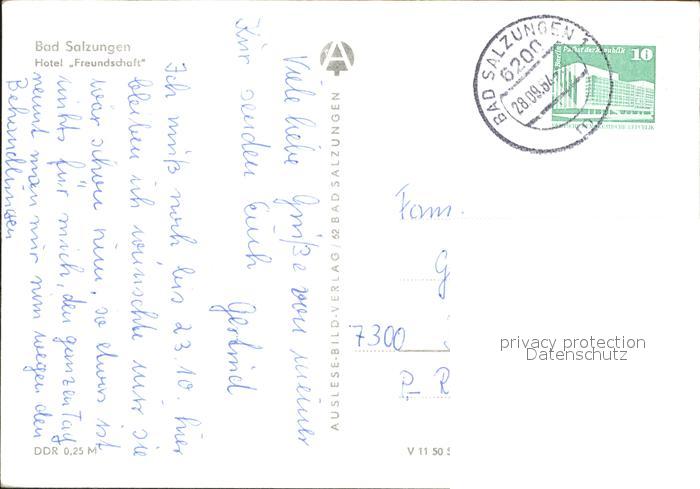 Bad Salzungen
Hotel „Freundschaft"
Viele liebe Grüße von meiner
Kur senden Euch
Gerlind
Ich muß noch bis 23.10. hier
bleiben ich wünschte mir sie
wär schon rum, so etwas ist
nichts für mich, den ganzen Tag
rennt man nur rum wegen den
Behandlungen
DDR 0,25 M
AUSLESE-BILD-VERLAG / 62 BAD SALZUNGEN
V 11 50
BAD SALZUNGEN 1
6200
28.09.84
m
Berlin Palast der Republik
10
Fam.
G
7300
privacy protection
Datenschutz